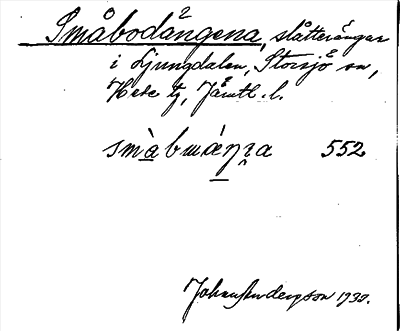 Småbodängena, slåtterängar
i Ljungdalen, Storsjö sn,
Hede tg, Jämtl. l.
småbmäŋna 552
Johan Anderson 1930.